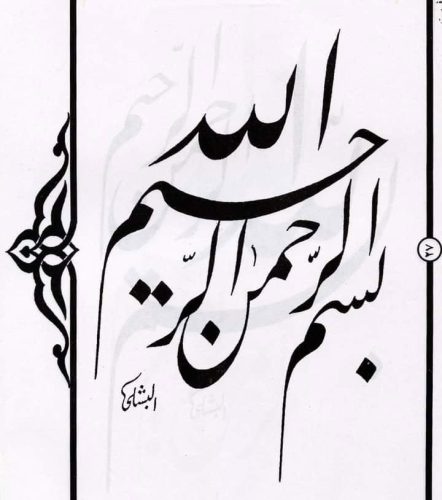 بسم الله الرَّحمٰن الرَّحيم
البشلي
٢٧